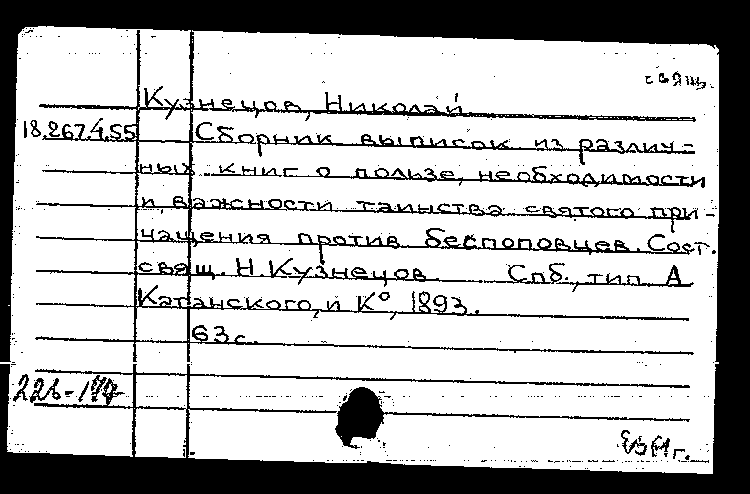 свящ.
Кузнецов, Николай
18.267.4.55 Сборник выписок из различ-
ных книг о пользе, необходимости
и важности таинства святого при-
чащения против беспоповцев. Сост.
свящ. Н. Кузнецов. Спб., тип. А.
Катанского, и К°, 1893.
63 с.